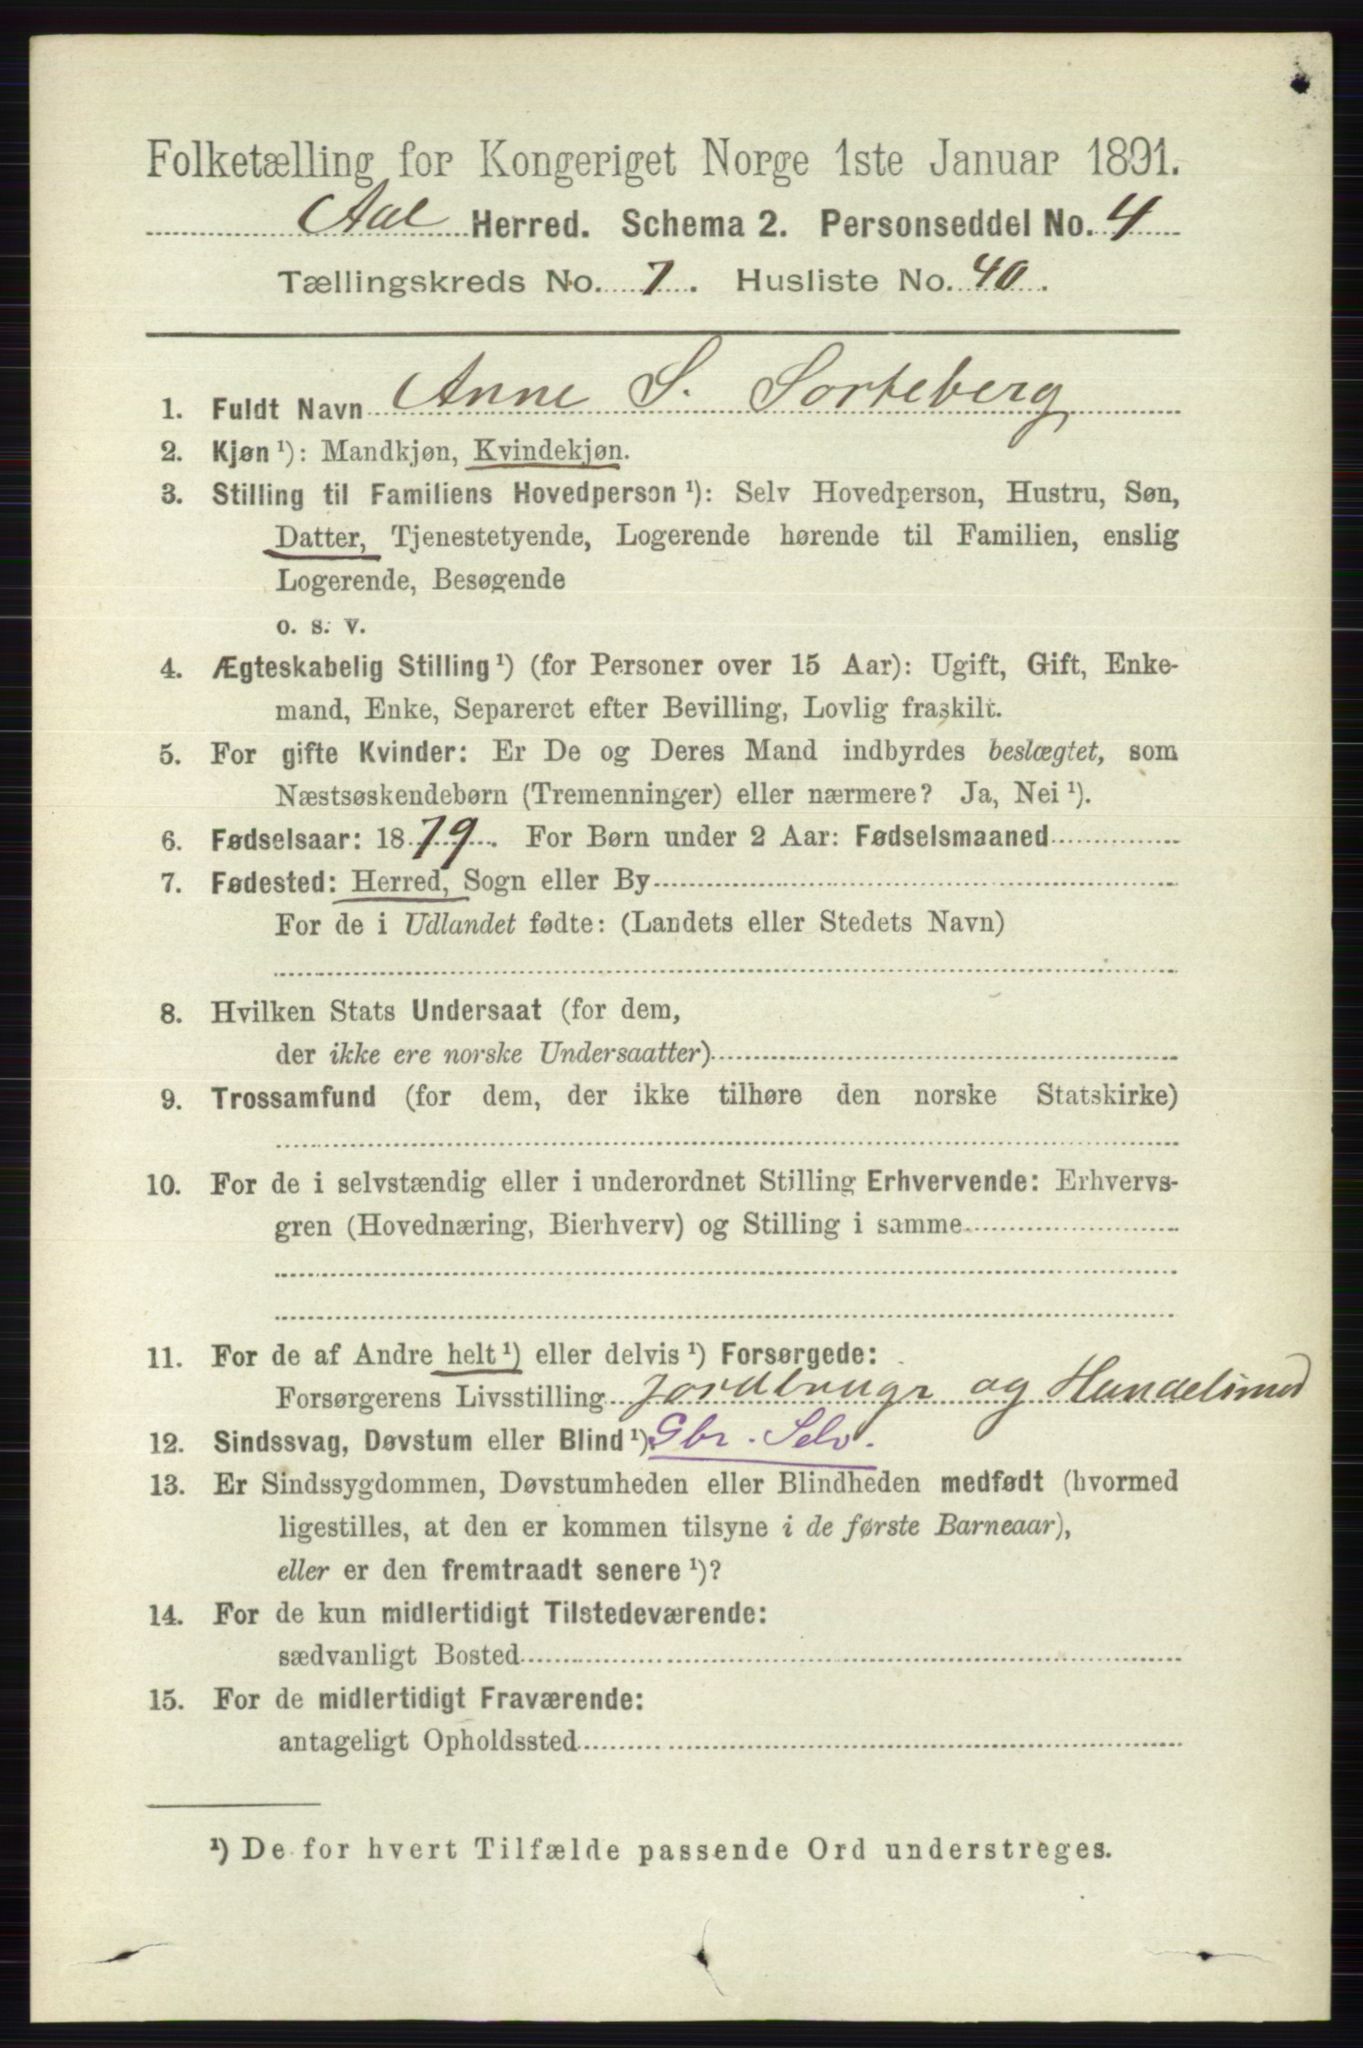 Folketælling for Kongeriget Norge 1ste Januar 1891.
Aal Herred. Schema 2. Personseddel No. 4
Tællingskreds No. 7. Husliste No. 40.
1. Fuldt Navn Anne S. Sorteberg
2. Kjøn ¹): Mandkjøn, Kvindekjøn.
3. Stilling til Familiens Hovedperson ¹): Selv Hovedperson, Hustru, Søn,
Datter, Tjenestetyende, Logerende hørende til Familien, enslig
Logerende, Besøgende
o. s. v.
4. Ægteskabelig Stilling ¹) (for Personer over 15 Aar): Ugift, Gift, Enke-
mand, Enke, Separeret efter Bevilling, Lovlig fraskilt.
5. For gifte Kvinder: Er De og Deres Mand indbyrdes beslægtet, som
Næstsøskendebørn (Tremenninger) eller nærmere? Ja, Nei ¹).
6. Fødselsaar: 1879. For Børn under 2 Aar: Fødselsmaaned
7. Fødested: Herred, Sogn eller By
For de i Udlandet fødte: (Landets eller Stedets Navn)
8. Hvilken Stats Undersaat (for dem,
der ikke ere norske Undersaatter)
9. Trossamfund (for dem, der ikke tilhøre den norske Statskirke)
10. For de i selvstændig eller i underordnet Stilling Erhvervende: Erhvervs-
gren (Hovednæring, Bierhverv) og Stilling i samme
11. For de af Andre helt ¹) eller delvis ¹) Forsørgede:
Forsørgerens Livsstilling Jordbrugr og Handelsmd
12. Sindssvag, Døvstum eller Blind ¹) Gbr. Selv.
13. Er Sindssygdommen, Døvstumheden eller Blindheden medfødt (hvormed
ligestilles, at den er kommen tilsyne i de første Barneaar),
eller er den fremtraadt senere ¹)?
14. For de kun midlertidigt Tilstedeværende:
sædvanligt Bosted
15. For de midlertidigt Fraværende:
antageligt Opholdssted
¹) De for hvert Tilfælde passende Ord understreges.